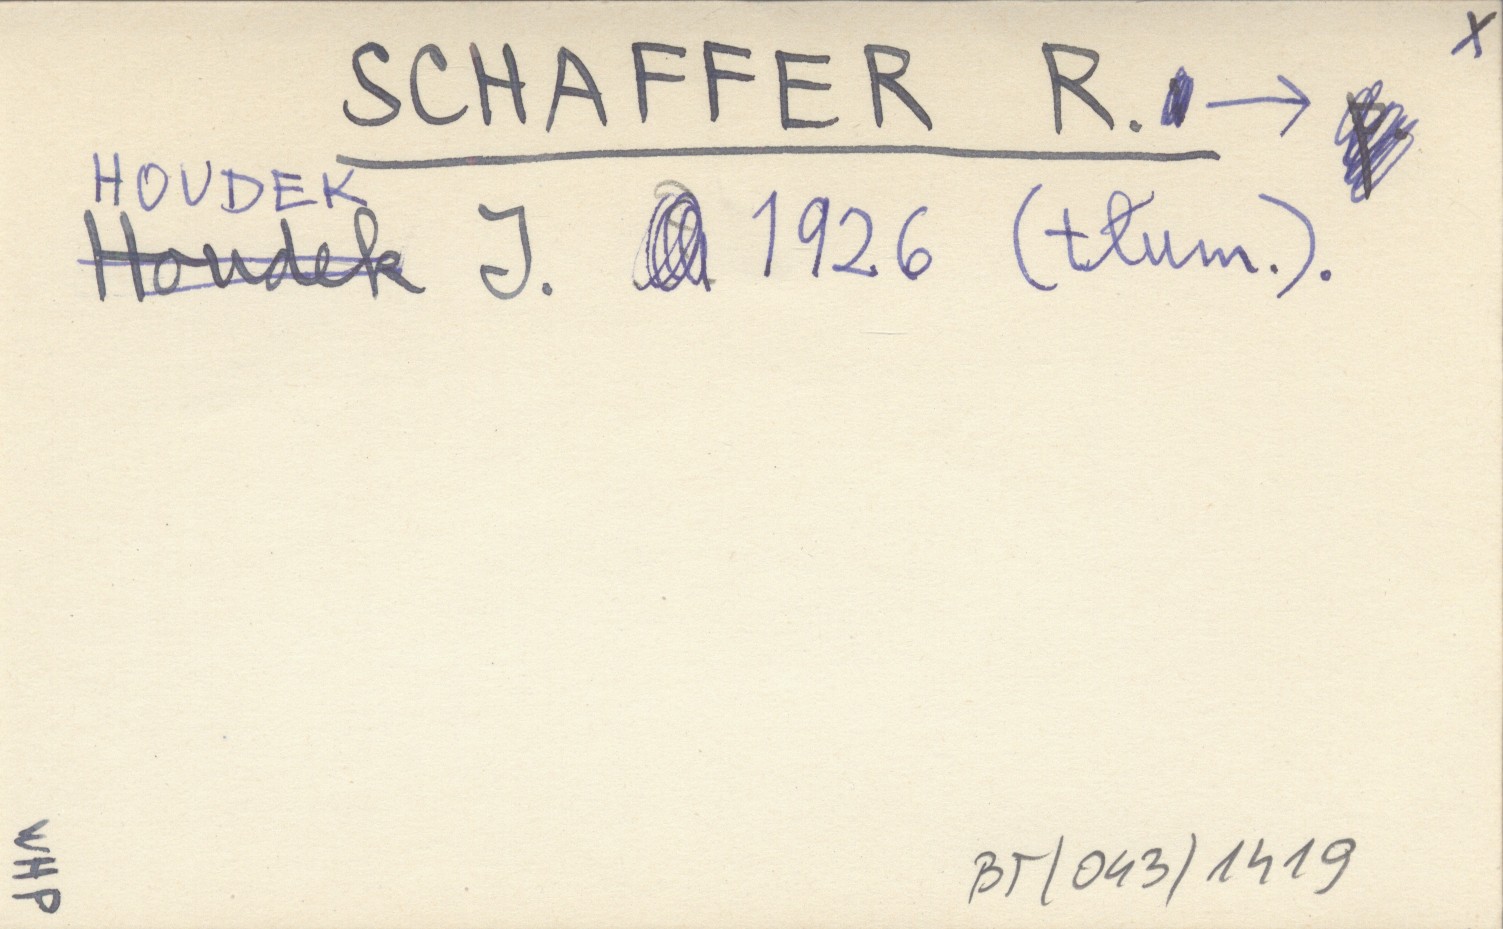 x
SCHAFFER R. →
HOUDEK
Houdek J. 1926 (tłum.).
WHP
BT/043/1419